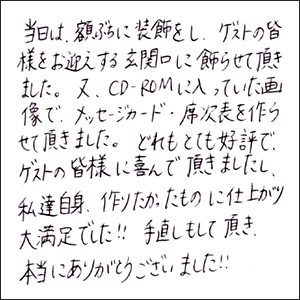 当日は、額ぶちに装飾をし、ゲストの皆
様をお迎えする玄関口に飾らせて頂き
ました。又、CD-ROMに入っていた画
像で、メッセージカード・席次表を作ら
せて頂きました。どれもとても好評で、
ゲストの皆様に喜んで頂きましたし、
私達自身、作りたかったものに仕上がり
大満足でした!! 手直しもして頂き、
本当にありがとうございました!!